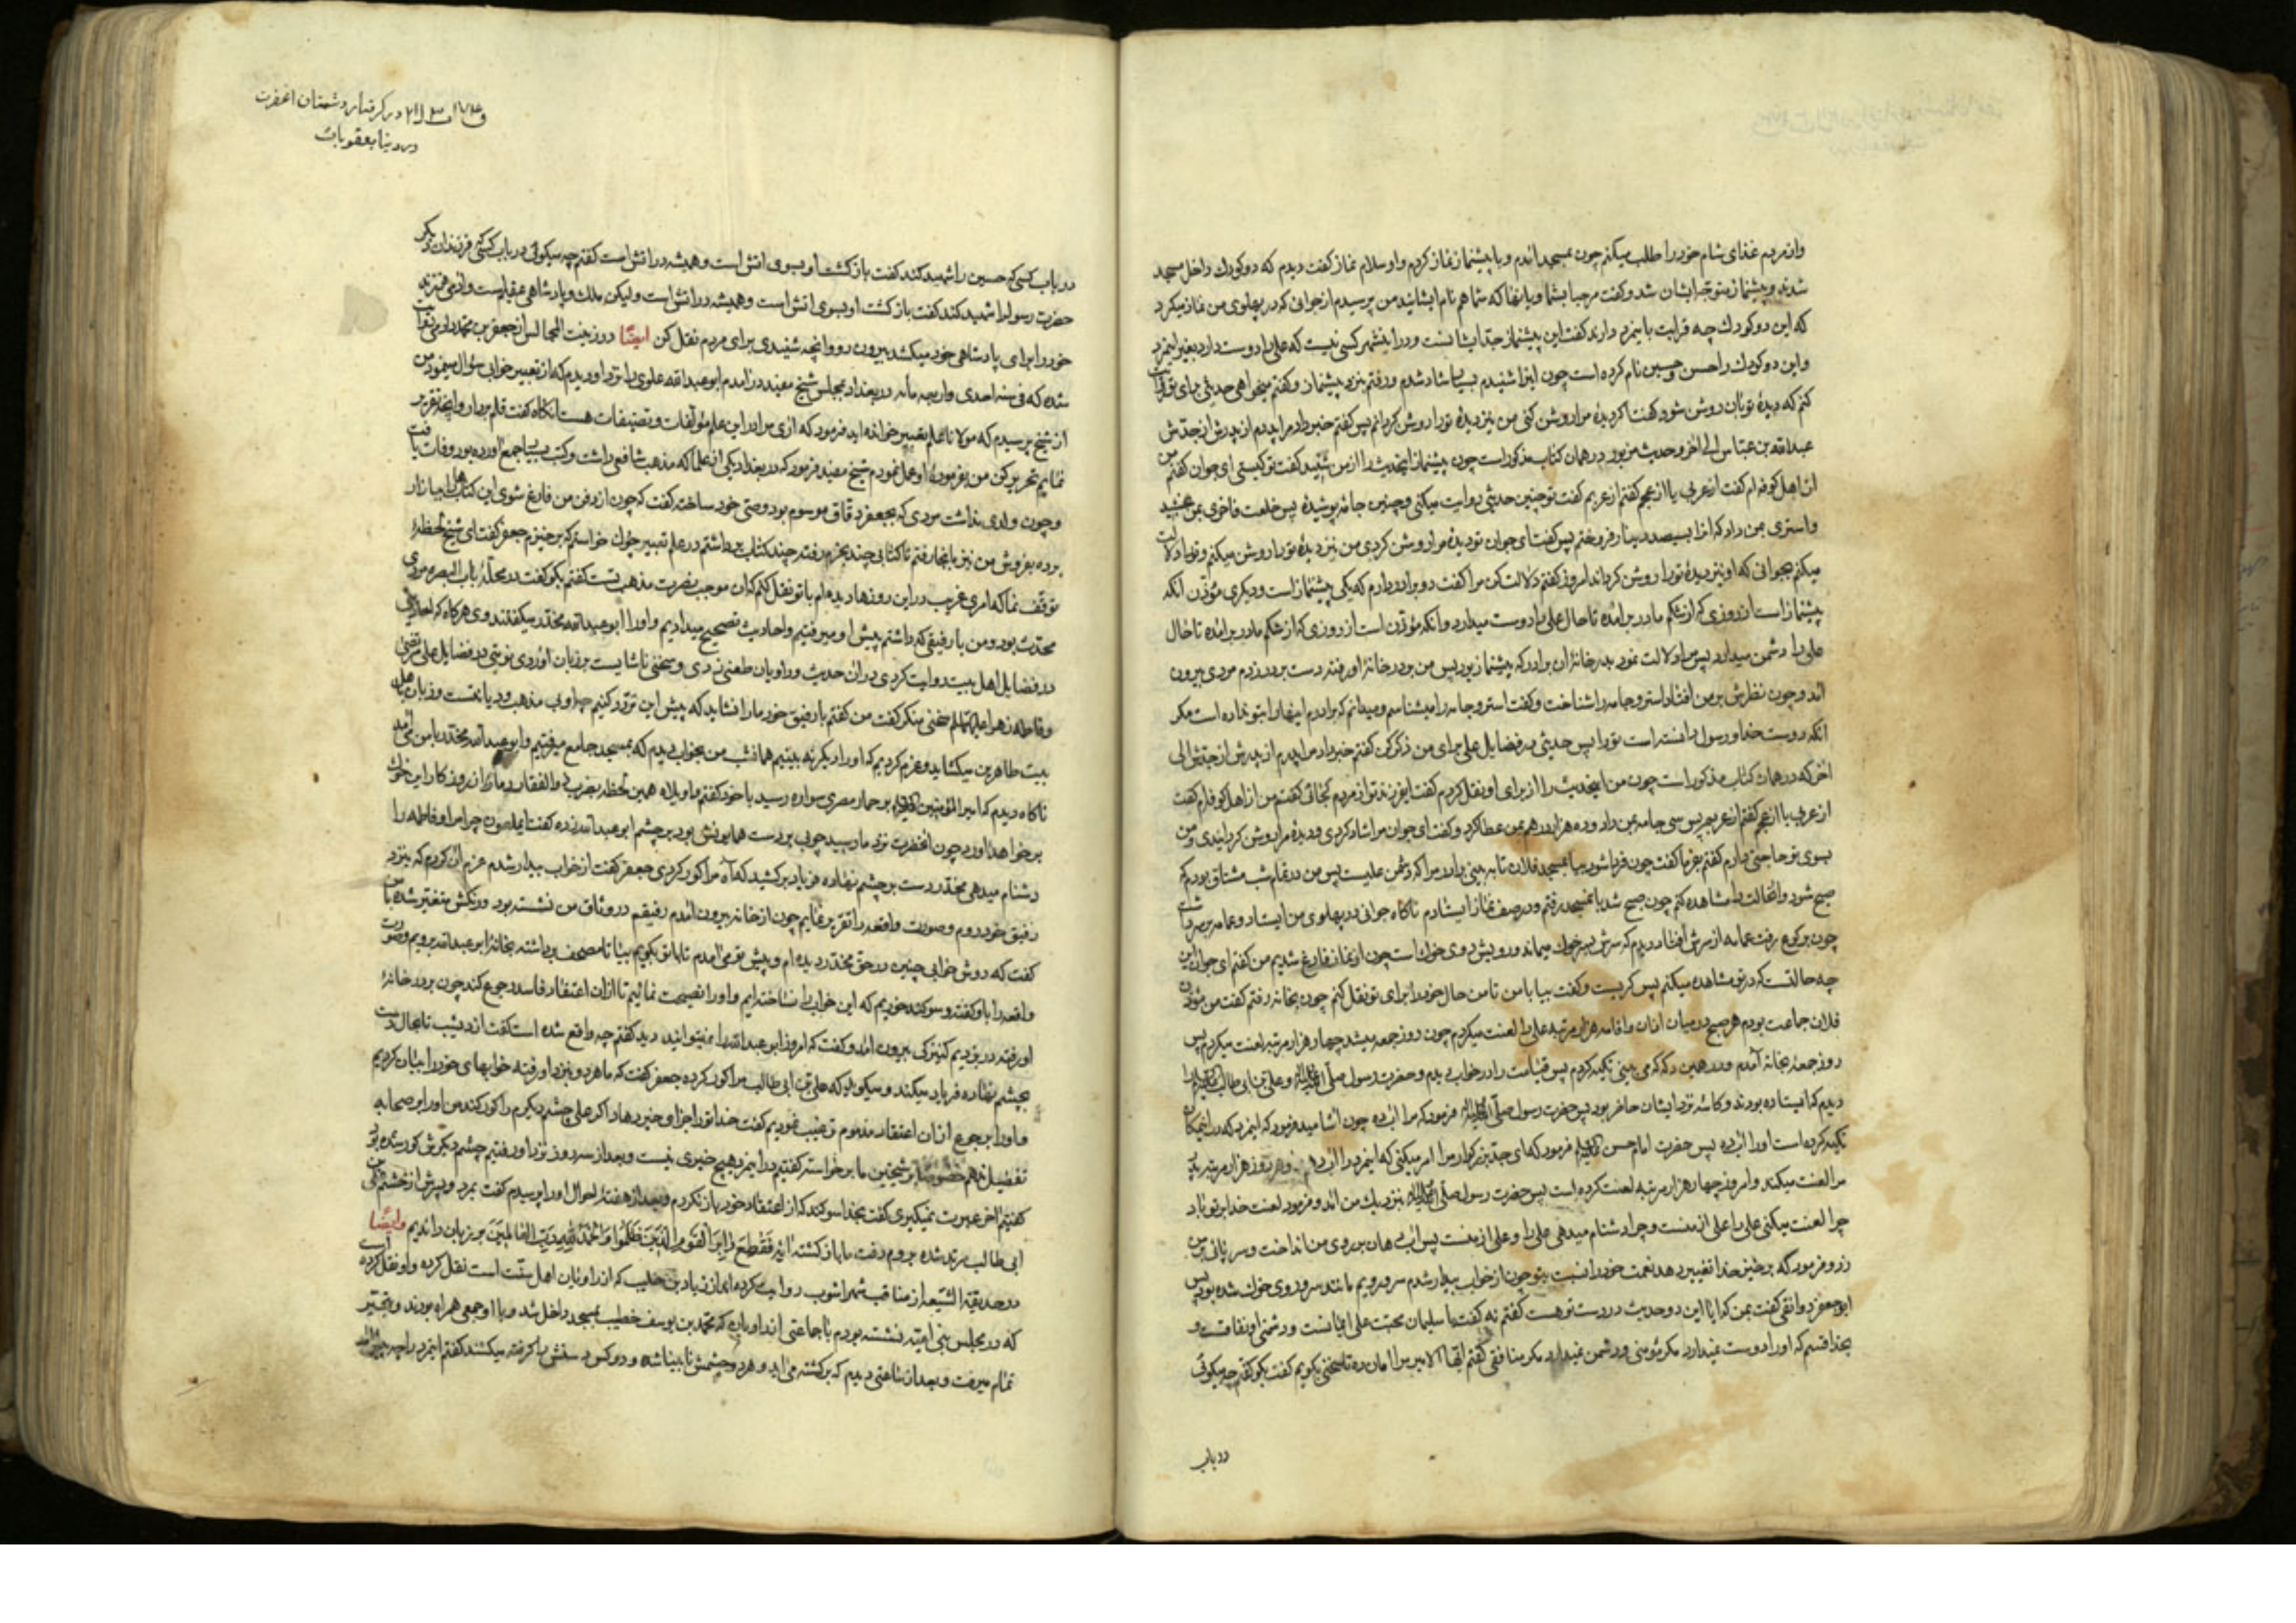 واز مردم غذای شام خود را طلب میکنم چون بمسجد اندم و با پیشنماز نماز کردم و او سلام نماز گفت دیدم که دو کودک داخل مسجد
شدند و پیشنماز متوجه ایشان شد و گفت مرحبا بشما و بانها که شما هم نام ایشانید من پرسیدم از جوانی که در پهلوی من نماز میکرد
که این دو کودک چه قرابت با ینمرد دارند گفت این پیشنماز جد ایشانست و در اینشهر کسی نیست که علی را دوست دارد بغیر اینمرد
و این دو کودک را حسن و حسین نام کرده است چون اینرا شنیدم بسیار شاد شدم و رفتم بنزد پیشنماز و گفتم میخواهی حدیثی برای تو نقل
کنم که دیدهٔ تو بان روشن شود گفت اگر دیدهٔ مرا روشن کنی من نیز دیدهٔ تو را روشن گردانم پس گفتم خبر داد مرا پدرم از پدرش از جدش
عبدالله بن عباس الی آخر و حدیث مزبور در همان کتاب مذکور است چون پیشنماز اینحدیث را از من شنید گفت تو کیستی ای جوان گفتم من
از اهل کوفه ام گفت از عربی یا از عجم گفتم از عربم گفت تو چنین حدیثی روایت میکنی و چنین جامه پوشیدهٔ پس خلعت فاخری بمن بخشید
و استری بمن داد که انرا بسیصد دینار فروختم پس گفت ای جوان تو دیدهٔ مرا روشن کردی من نیز دیدهٔ تو را روشن میکنم و تو را دلالت
میکنم بجوانی که او نیز دیدهٔ تو را روشن گرداند امروز گفتم دلالت کن مرا گفت دو برادر دارم که یکی پیشنماز است و دیگری مؤذن انکه
پیشنماز است از روزی که از شکم مادر برامده تا حال علی را دوست میدارد و انکه مؤذن است از روزی که از شکم مادر برامده تا حال
علی را دشمن میدارد پس مرا دلالت نمود بدر خانهٔ ان برادر که پیشنماز بود پس من بدر خانهٔ او رفته دست بر در زدم مردی بیرون
امد و چون نظرش بر من افتاد استر و جامه را شناخت و گفت استر و جامه را میشناسم و میدانم که برادرم اینها را بتو نداده است مگر
انکه دوست خدا و رسول دانسته است تو را پس حدیثی در فضایل علی برای من ذکر کن گفتم خبر داد مرا پدرم از پدرش از جدش الی
اخر که در همان کتاب مذکور است چون من اینحدیث را از برای او نقل کردم گفت ایفرزند تو از مردم کجائی گفتم من از اهل کوفه ام گفت
از عربی یا از عجم گفتم از عربم پس سی جامه بمن داد و ده هزار درهم بمن عطا کرد و گفت ای جوان مرا شاد کردی و دیدهٔ مرا روشن گردانیدی و من
بسوی تو حاجتی دارم گفتم بفرما گفت چون فردا شود بیا بمسجد فلان تا به بینی برادر مرا که دشمن علیست پس من در تمام شب مشتاق بودم که
صبح شود و انحالت را مشاهده کنم چون صبح شد بانمسجد رفتم و در صف نماز ایستادم ناگاه جوانی در پهلوی من ایستاد و عمامه بر سر داشت
چون برکوع رفت عمامه از سرش افتاد دیدم که سرش بسر خوک میماند و رویش بروی خوک است چون از نماز فارغ شدیم من گفتم ای جوان این
چه حالتست که در تو مشاهده میکنم پس گریست و گفت بیا با من تا من حال خود را برای تو نقل کنم چون بخانه رفتم گفت من مؤذن
فلان جماعت بودم هر صبح در میان اذان و اقامه هزار مرتبه علی را لعنت میکردم چون روز جمعه میشد چهار هزار مرتبه لعنت میکردم پس
روز جمعه بخانه آمدم و در همین دکه که می بینی تکیه کردم پس قیامت را در خواب دیدم و حضرت رسول صلی الله علیه و علی بن ابی طالب را
دیدم که ایستاده بودند و کاسه نزد ایشان حاضر بود پس حضرت رسول صلی الله علیه فرمود که مرا اب ده چون اشامید فرمود که اینمرد که در اینمکان
تکیه کرده است او را اب ده پس حضرت امام حسن فرمود که ای جد بزرگوار مرا امر میکنی که اینمرد را اب دهم و هر روز هزار مرتبه پدر
مرا لعنت میکند و امروز چهار هزار مرتبه لعنت کرده است پس حضرت رسول صلی الله علیه بنزدیک من امد و فرمود لعنت خدا بر تو باد
چرا لعنت میکنی علی را علی از منست و چرا دشنام میدهی علی را و علی از منست پس اب دهان بر روی من انداخت و سر پائی بر من
زد و فرمود که برخیز خدا تغییر دهد نعمت خود را نسبت بتو چون از خواب بیدار شدم سر و رویم مانند سر و روی خوک شده بود پس
ابو جعفر دوانقی گفت بمن که ایا این دو حدیث در دست تو هست گفتم نه گفت یا سلیمان محبت علی ایمانست و دشمنی او نفاقست و
بخدا قسم که او را دوست نمیدارد مگر مؤمنی و دشمن نمیدارد مگر منافقی گفتم ایها الامیر مرا امان ده تا سخنی بگویم گفت بگو گفتم چه میگوئی
در باب
در گرفتار دشمنان انحضرت
در دنیا بعقوبات
در باب کسی که حسین را شهید کند گفت بازگشت او بسوی اتش است و همیشه در اتش است گفتم چه میگوئی در باب کسی که فرزندان دیگر
حضرت رسول را شهید کند گفت بازگشت او بسوی اتش است و همیشه در اتش است و لیکن ملک و پادشاهی عقیم است و ادمی فرزند
خود را برای پادشاهی خود میکشد بیرون رو و انچه شنیدی برای مردم نقل کن ایضًا در زینت المجالس از جعفر بن محمد دوریستی
شده که فی سنه احدی و اربعمأه در بغداد بمجلس شیخ مفید در امدم ابو عبدالله علوی را نزد او دیدم که از تعبیر خوابی سؤال مینمود من
از شیخ پرسیدم که مولانا علم تعبیر خوانده اید فرمود که اری مرا در این علم مؤلفات و تصنیفات هست انگاه گفت قلم بردار و انچه تقریر
نمایم تحریر کن من بفرمودهٔ او عمل نمودم شیخ مفید فرمود که در بغداد یکی از علما که مذهب شافعی داشت و کتب بسیار جمع اورده بود وفات یافت
و چون وارثی نداشت مردی که بجعفر دقاق موسوم بود وصی خود ساخته گفت که چون از دفن من فارغ شوی این کتابها را ببازار
برده بفروش من نیز بانجا رفتم تا کتابی چند بخرم رفته چند کتاب برداشتم در علم تعبیر چون خواستم که برخیزم جعفر گفت ای شیخ لحظهٔ
توقف نما که امری غریب در این روزها دیده ام با تو نقل کنم که ان موجب نصرت مذهب تست گفتم بگو گفت در محلهٔ باب البصره مردی
محدث بود و من با رفیقی که داشتم پیش او میرفتیم و احادیث تصحیح میدادیم و او را ابو عبدالله محدث میگفتند وی هرگاه که احادیثی
در فضایل اهل بیت روایت کردی در ان حدیث و راویان طعنی زدی و سخنی ناشایست بر زبان اوردی نوبتی در فضایل علی مرتضی
و فاطمه زهرا علیهما السلام سخنی منکر گفت من گفتم با رفیق خود ما را نشاید که پیش این تردد کنیم چه او بی مذهب و دیانتست و زبان باهل
بیت طاهرین میگشاید و عزم کردیم که او را دیگر نه بینیم همانشب من بخواب دیدم که بمسجد جامع میرفتیم و ابو عبدالله محدث با من می امد
ناگاه دیدم که امیر المؤمنین بر حمار مصری سواره رسید با خود گفتم واویلاه همین لحظه بضرب ذوالفقار دمار از روزگار این خوک
بر خواهد اورد چون انحضرت نزد ما رسید چوبی بر دست همایونش بود بر چشم ابو عبدالله زده گفت ایملعون چرا مرا و فاطمه را
دشنام میدهی محدث دست بر چشم نهاده فریاد برکشید که آه مرا کور کردی جعفر گفت از خواب بیدار شدم عزم ان کردم که بنزد
رفیق خود روم و صورت واقعه را تقریر نمایم چون از خانه بیرون امدم رفیقم در وثاق من نشسته بود و رنگش متغیر شده با من
گفت که دوش خوابی چنین در حق محدث دیده ام و پیش تو می امدم تا با تو بگویم بیا تا مصحف برداشته بخانهٔ ابو عبدالله برویم و صورت
واقعه را باو گفته و سوگند خوریم که این خواب را نساخته ایم و او را نصیحت نمائیم تا از ان اعتقاد فاسد رجوع کند چون بر در خانهٔ
او رفته در بزدیم کنیزکی بیرون امد و گفت که امروز ابو عبدالله را نمیتوانید دید گفتم چه واقع شده است گفت از دیشب تا بحال دست
بچشم نهاده فریاد میکند و میگوید که علی بن ابی طالب مرا کور کرده جعفر گفت که ما هر دو بنزد او رفته خوابهای خود را بیان کردیم
و او را برجوع از ان اعتقاد مذموم ترغیب نمودیم گفت خدا تو را جزای خیر دهاد اگر علی چشم دیگرم را کور کند من او را بر صحابه
تفضیل ندهم خصوصا بر شیخین ما برخواسته گفتیم در اینمرد هیچ خیری نیست و بعد از سه روز نزد او رفتیم چشم دیگرش کور شده بود
گفتیم اخر عبرت نمیگیری گفت بخدا سوگند که از اعتقاد خود باز نگردم و بعد از هفتهٔ احوال او را پرسیدم گفت بمرد و پسرش از خشم علی بن
ابی طالب مرتد شده بروم رفت ما باز گشته ایه فَقُطِعَ دابِرُ الْقَوْمِ الَّذِینَ ظَلَمُوا وَالْحَمْدُ لِلَّهِ رَبِّ الْعالَمِینَ بر زبان راندیم و ایضًا
در حدیقة الشیعه از مناقب شهراشوب روایت کرده اند از زیاد بن کلیب که از راویان اهل سنت است نقل کرده و او نقل کرده است
که در مجلس بنی امیه نشسته بودم با جماعتی از راویان که محمد بن یوسف خطیب بمسجد داخل شد و با او جمعی همراه بودند و بتبختر
تمام میرفت و بعد از ساعتی دیدم که برگشته می اید و هر دو چشمش نابینا شده و دو کس دستش را گرفته میکشند گفتم اینمرد را چه